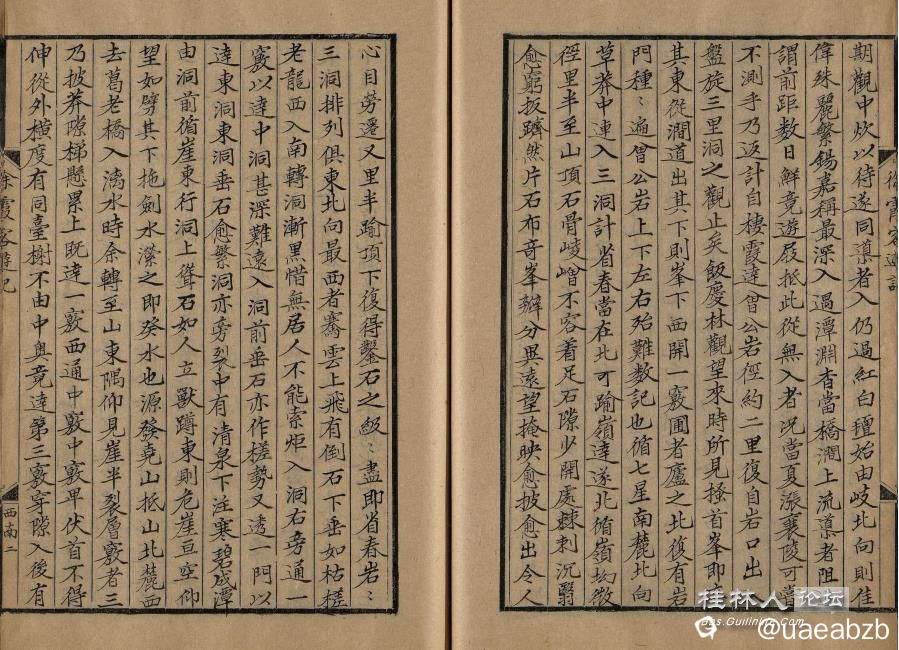 期觀中炊以待遂同導者入仍過紅白氊始由岐北向則佳
偉殊麗繁錫嘉稱最深入過潭淵杳當橋澗上流導者阻
謂前距數日鮮竟遊屐抵此從無入者況當夏漲襄陵可嘗
不測乎乃返計自棲霞達曾公岩徑約二里復自岩口出入
盤旋三里洞之觀止矣飯慶林觀望來時所見搔首峯即
其東從澗道出其下則峯下西開一竅圃者廬之北復有岩
門種〻遍曾公岩上下左右殆難數記也循七星南麓北向
草莽中連入三洞計省春當在北可踰嶺達遂北循嶺坳微
徑里半至山頂石骨崚嶒不容着足石隙少開處棘刺沉翳
愈窮扳躋然片石布奇峯瓣分異遠望掩映愈披愈出令人
心目勞遷又里半踰頂下復得鑿石之級〻盡即省春岩〻
三洞排列俱東北向最西者騫雲上飛有倒石下垂如枯槎
老龍西入南轉洞漸黑惜無居人不能索炬入洞右旁通一
竅以達中洞甚深難遠入洞前垂石亦作槎勢又透一門以
達東洞東洞垂石愈繁洞亦旁裂中有清泉下注寒碧成潭
由洞前循崖東行洞上聳石如人立獸蹲東則危崖亘空仰
望如劈其下拖劍水瀠之即癸水也源發堯山抵山北麓西
去葛老橋入漓水時余轉至山東隅仰見崖半裂層竅者三
乃披莽隙梯懸累上既達一竅西通中竅中竅卑伏首不得
伸從外橫度有同臺榭不由中奥竟達第三竅穿隙入後有
霞客遊記
西南二
桂林人论坛
bbs.Guilinlife.Com
@uaeabzb